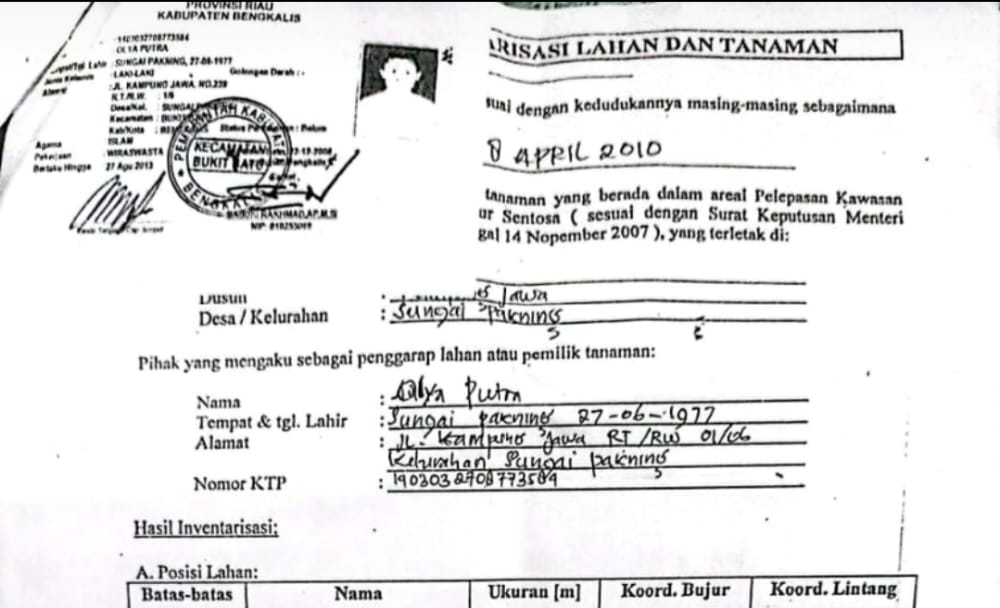 PROVINSI RIAU
KABUPATEN BENGKALIS
OLYA PUTRA
: SUNGAI PAKNING, 27-06-1977
: LAKI-LAKI
Golongan Darah : -
: JL. KAMPUNG JAWA. NO.229
Agama : ISLAM
Pekerjaan : WIRASWASTA
Berlaku Hingga : 27 Agu 2013
KECAMATAN
BUKIT BATU
BENGKALIS
ARISASI LAHAN DAN TANAMAN
suai dengan kedudukannya masing-masing sebagaimana
8 APRIL 2010
tanaman yang berada dalam areal Pelepasan Kawasan
ur Sentosa ( sesuai dengan Surat Keputusan Menteri
gal 14 Nopember 2007 ), yang terletak di:
Dusun : Jawa
Desa / Kelurahan : Sungai Pakning
Pihak yang mengaku sebagai penggarap lahan atau pemilik tanaman:
Nama : Olya Putra
Tempat & tgl. Lahir : Sungai pakning 27-06-1977
Alamat : JL. Kampung Jawa RT/RW 01/06
Kelurahan Sungai pakning
Nomor KTP :
Hasil Inventarisasi:
A. Posisi Lahan:
Batas-batas Nama Ukuran [m] Koord. Bujur Koord. Lintang